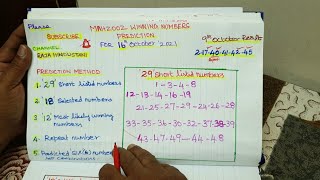 Please
SUBSCRIBE
CHANNEL
MAH2002 WINNING NUMBERS
PREDICTION
FOR 16 October 2021
9th October Result
2-17-40-41-42-45
PREDICTION METHOD
1. "29" Short listed numbers
2. "18" Selected numbers
3. "12" Most likely winning numbers
4. Repeat number
5. Predicted six(6) numbers
29 Short listed numbers
1-3-4-8
12-13-14-16-19
21-25-27-29-24-26-28
33-35-36-30-32-37-38-39
43-47-49-44-48